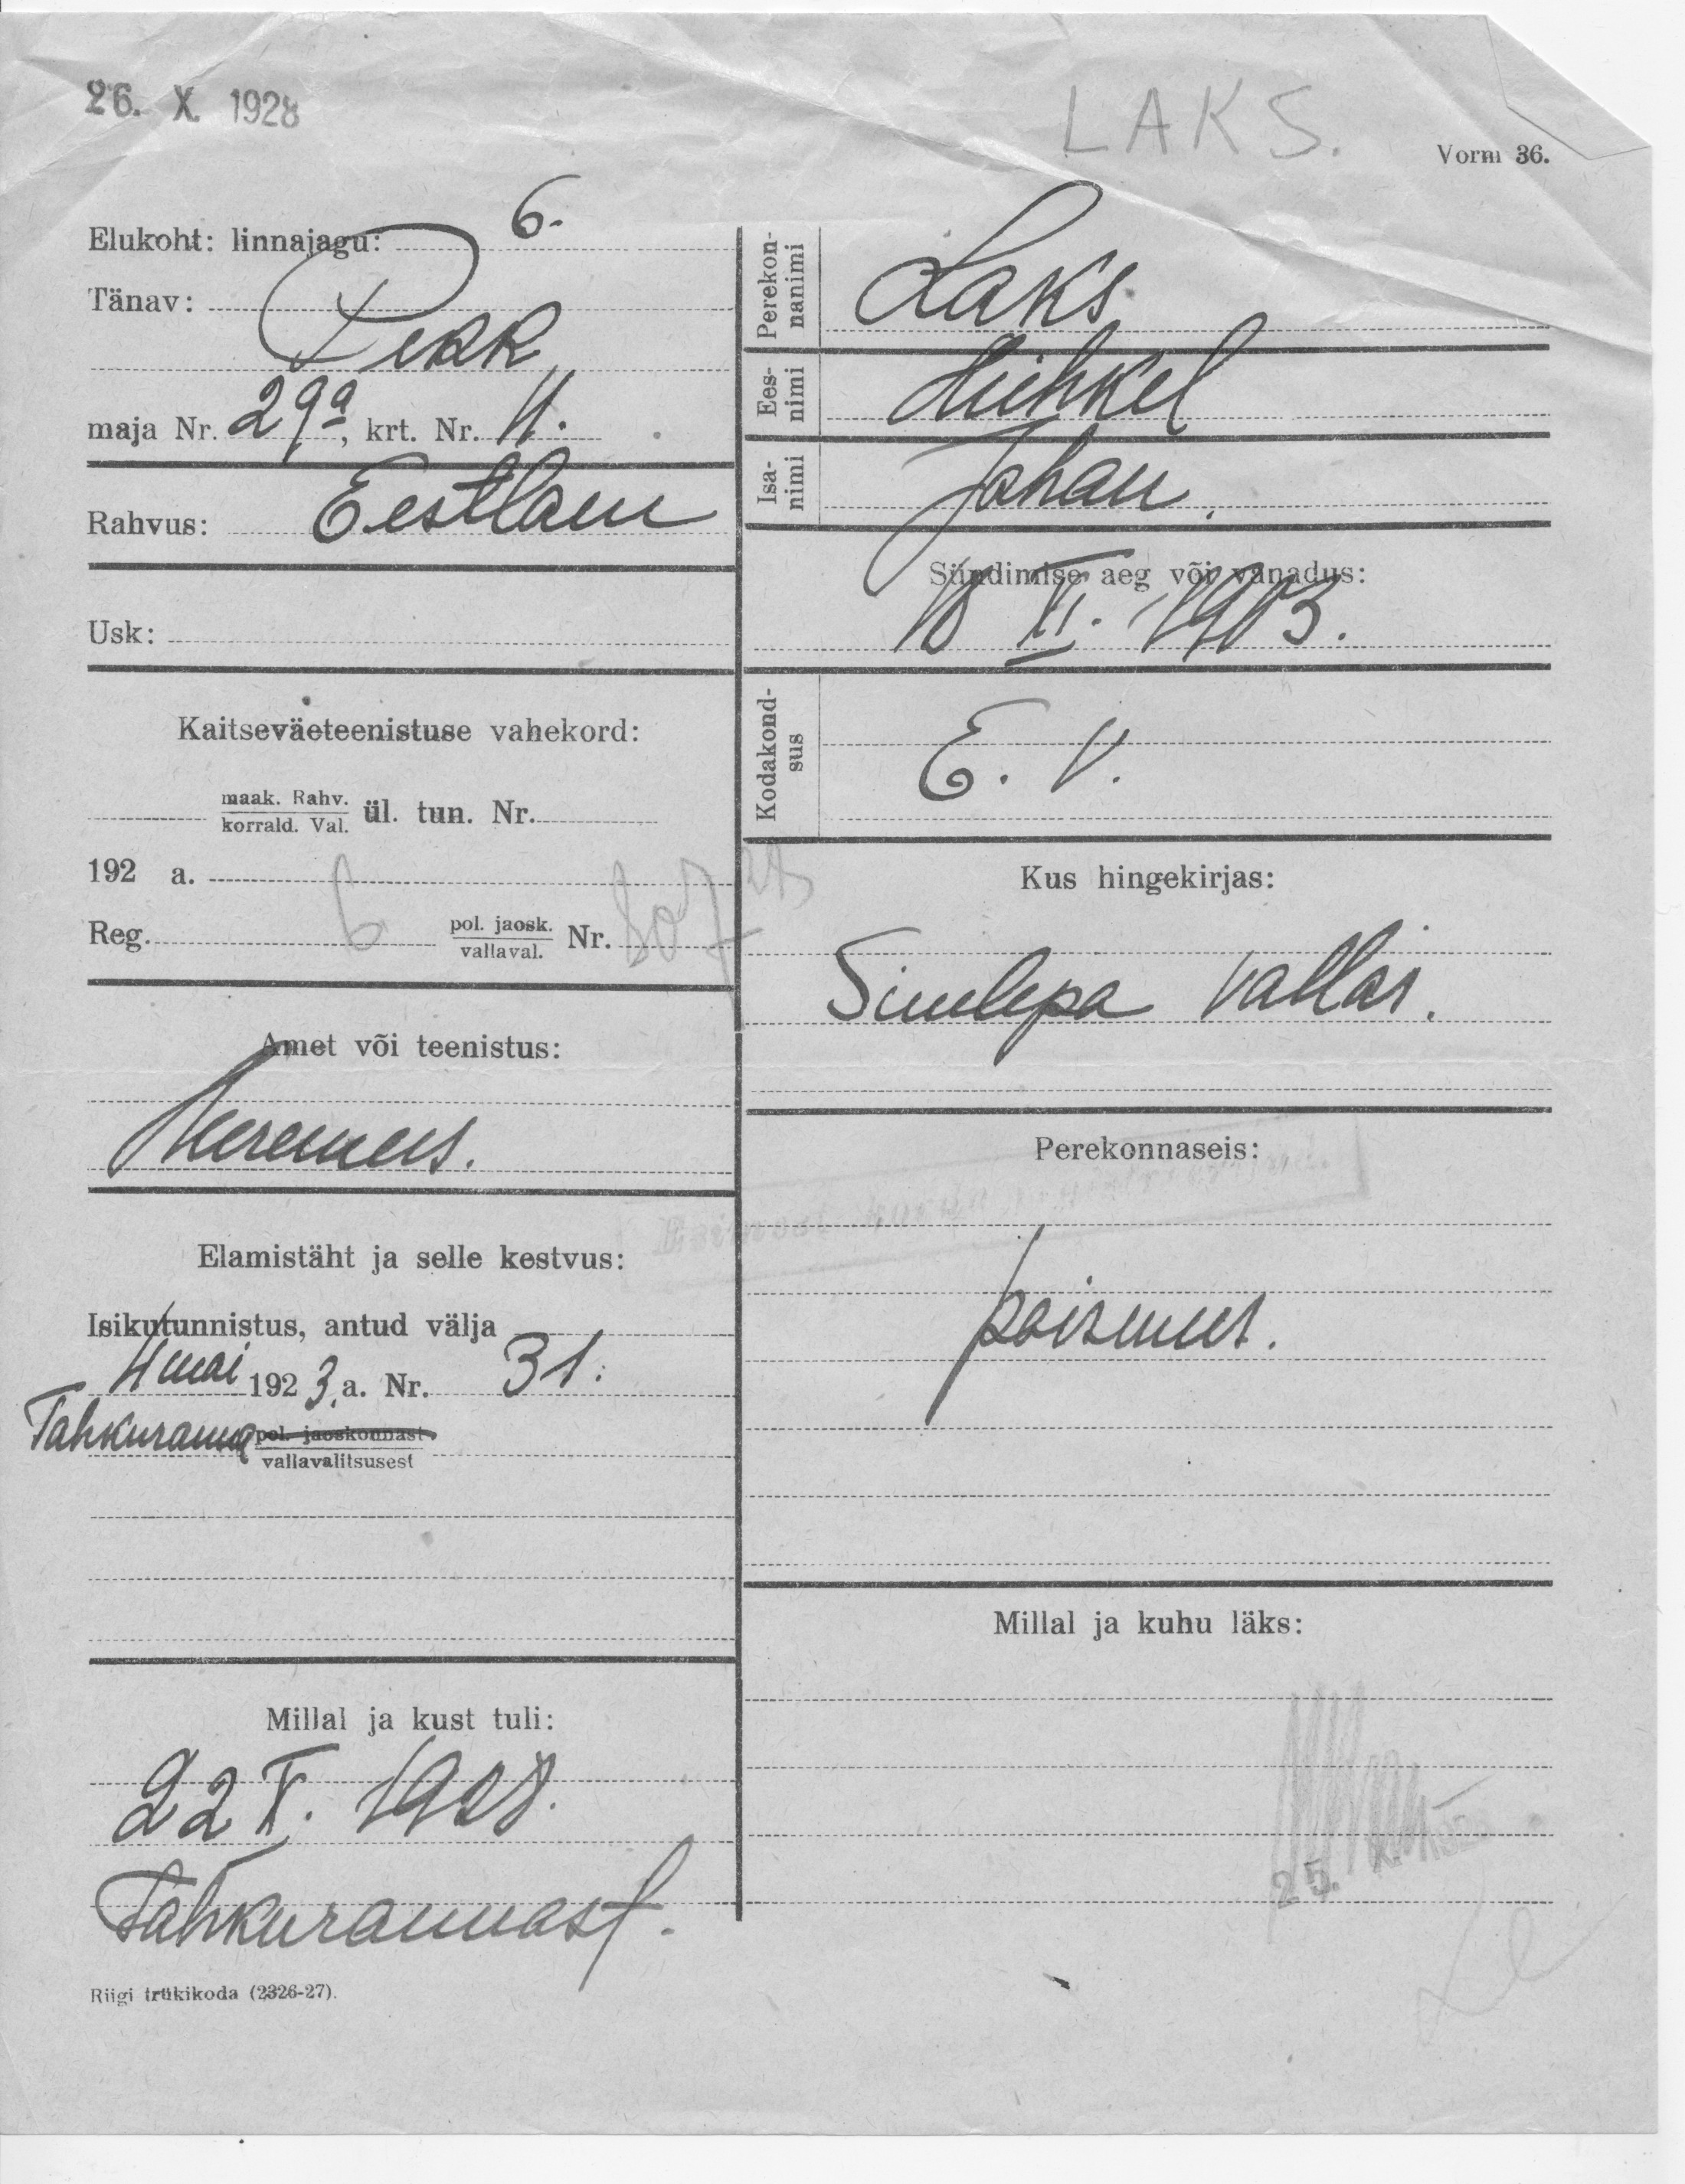 26. X. 1928
LAKS.
Vorm 36.
Elukoht: linnajagu: 6.
Tänav: Pikk
maja Nr. 29a, krt. Nr. 11.
Rahvus: Eestlane
Usk:
Kaitseväeteenistuse vahekord:
maak. Rahv.
korrald. Val. ül. tun. Nr.
192 a.
Reg. 6 pol. jaosk.
vallaval. Nr. 807
Amet või teenistus:
Meremees.
Elamistäht ja selle kestvus:
Isikutunnistus, antud välja
4 mai 1923. a. Nr. 31.
Tahkuranna pol. jaoskonnast
vallavalitsusest
Millal ja kust tuli:
22 X. 1928.
Tahkurannast.
Riigi trükikoda (2326-27).
Perekon-
nanimi Laks
Ees-
nimi Mihkel
Isa-
nimi Johan.
Sündimise aeg või vanadus:
18 II. 1903.
Kodakond-
sus E. V.
Kus hingekirjas:
vallas.
Perekonnaseis:
poismees.
Millal ja kuhu läks:
25.